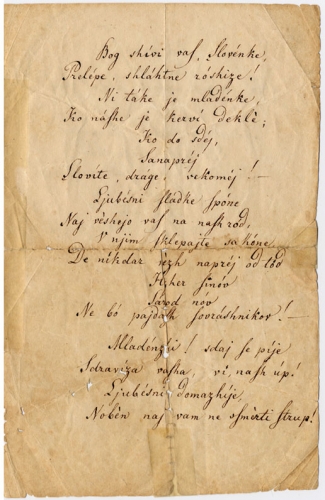 Bog shivi vaſ, Slovenke,
Prelepe, shlahtne roshize!
Ni take je mladenke,
Ko naſhe je kervi deklè;
Ko do sdej,
Sanaprej
Slovite, drage, vekomej! —
Ljubesni ſladke ſpone
Naj veshejo vaſ na naſh ród,
V njim ſklepajte sakone,
De nikdar vezh naprej od tod
Hzher ſinov
Sarod nov
Ne bó pajdaſh ſovrashnikov! —
Mladenzhi! sdaj ſe pije
Sdraviza vaſha, vi naſh úp!
Ljubesni domazhije
Nobèn naj vam ne oſmèrti ſtrup!